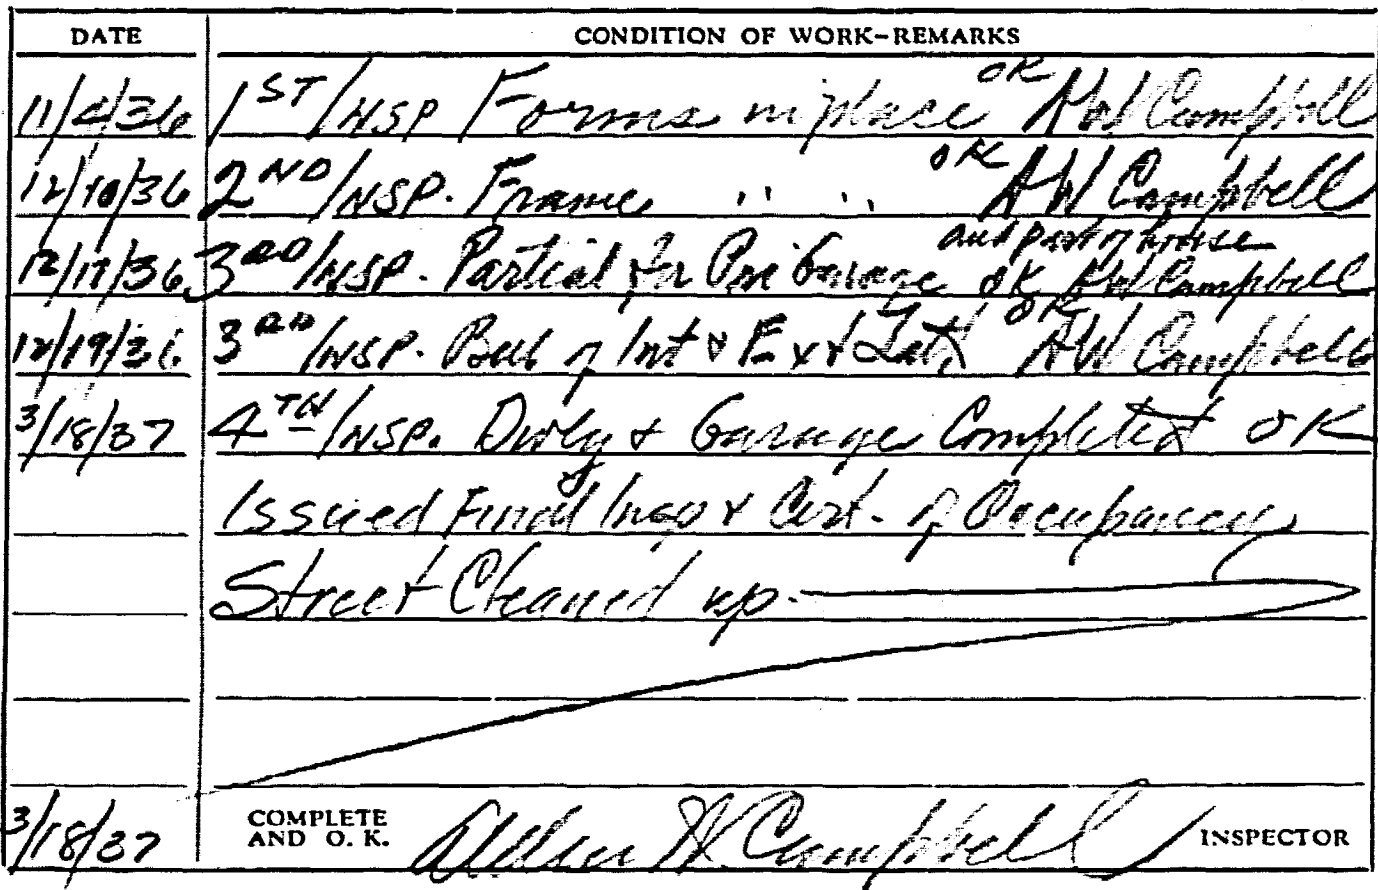 DATE CONDITION OF WORK—REMARKS
11/4/36 1ST INSP Forms in place OK AW Campbell
12/10/36 2ND INSP. Frame " " OK AW Campbell
and part of house
12/17/36 3RD INSP. Partial for Garage OK AW Campbell
12/19/36 3RD INSP. Bal of Int & Ext Lath OK AW Campbell
3/18/37 4TH INSP. Dwlg & Garage Completed OK
Issued Final Insp & Cert. of Occupancy
Street Cleaned up.
3/18/37 COMPLETE AND O. K. W. Campbell INSPECTOR